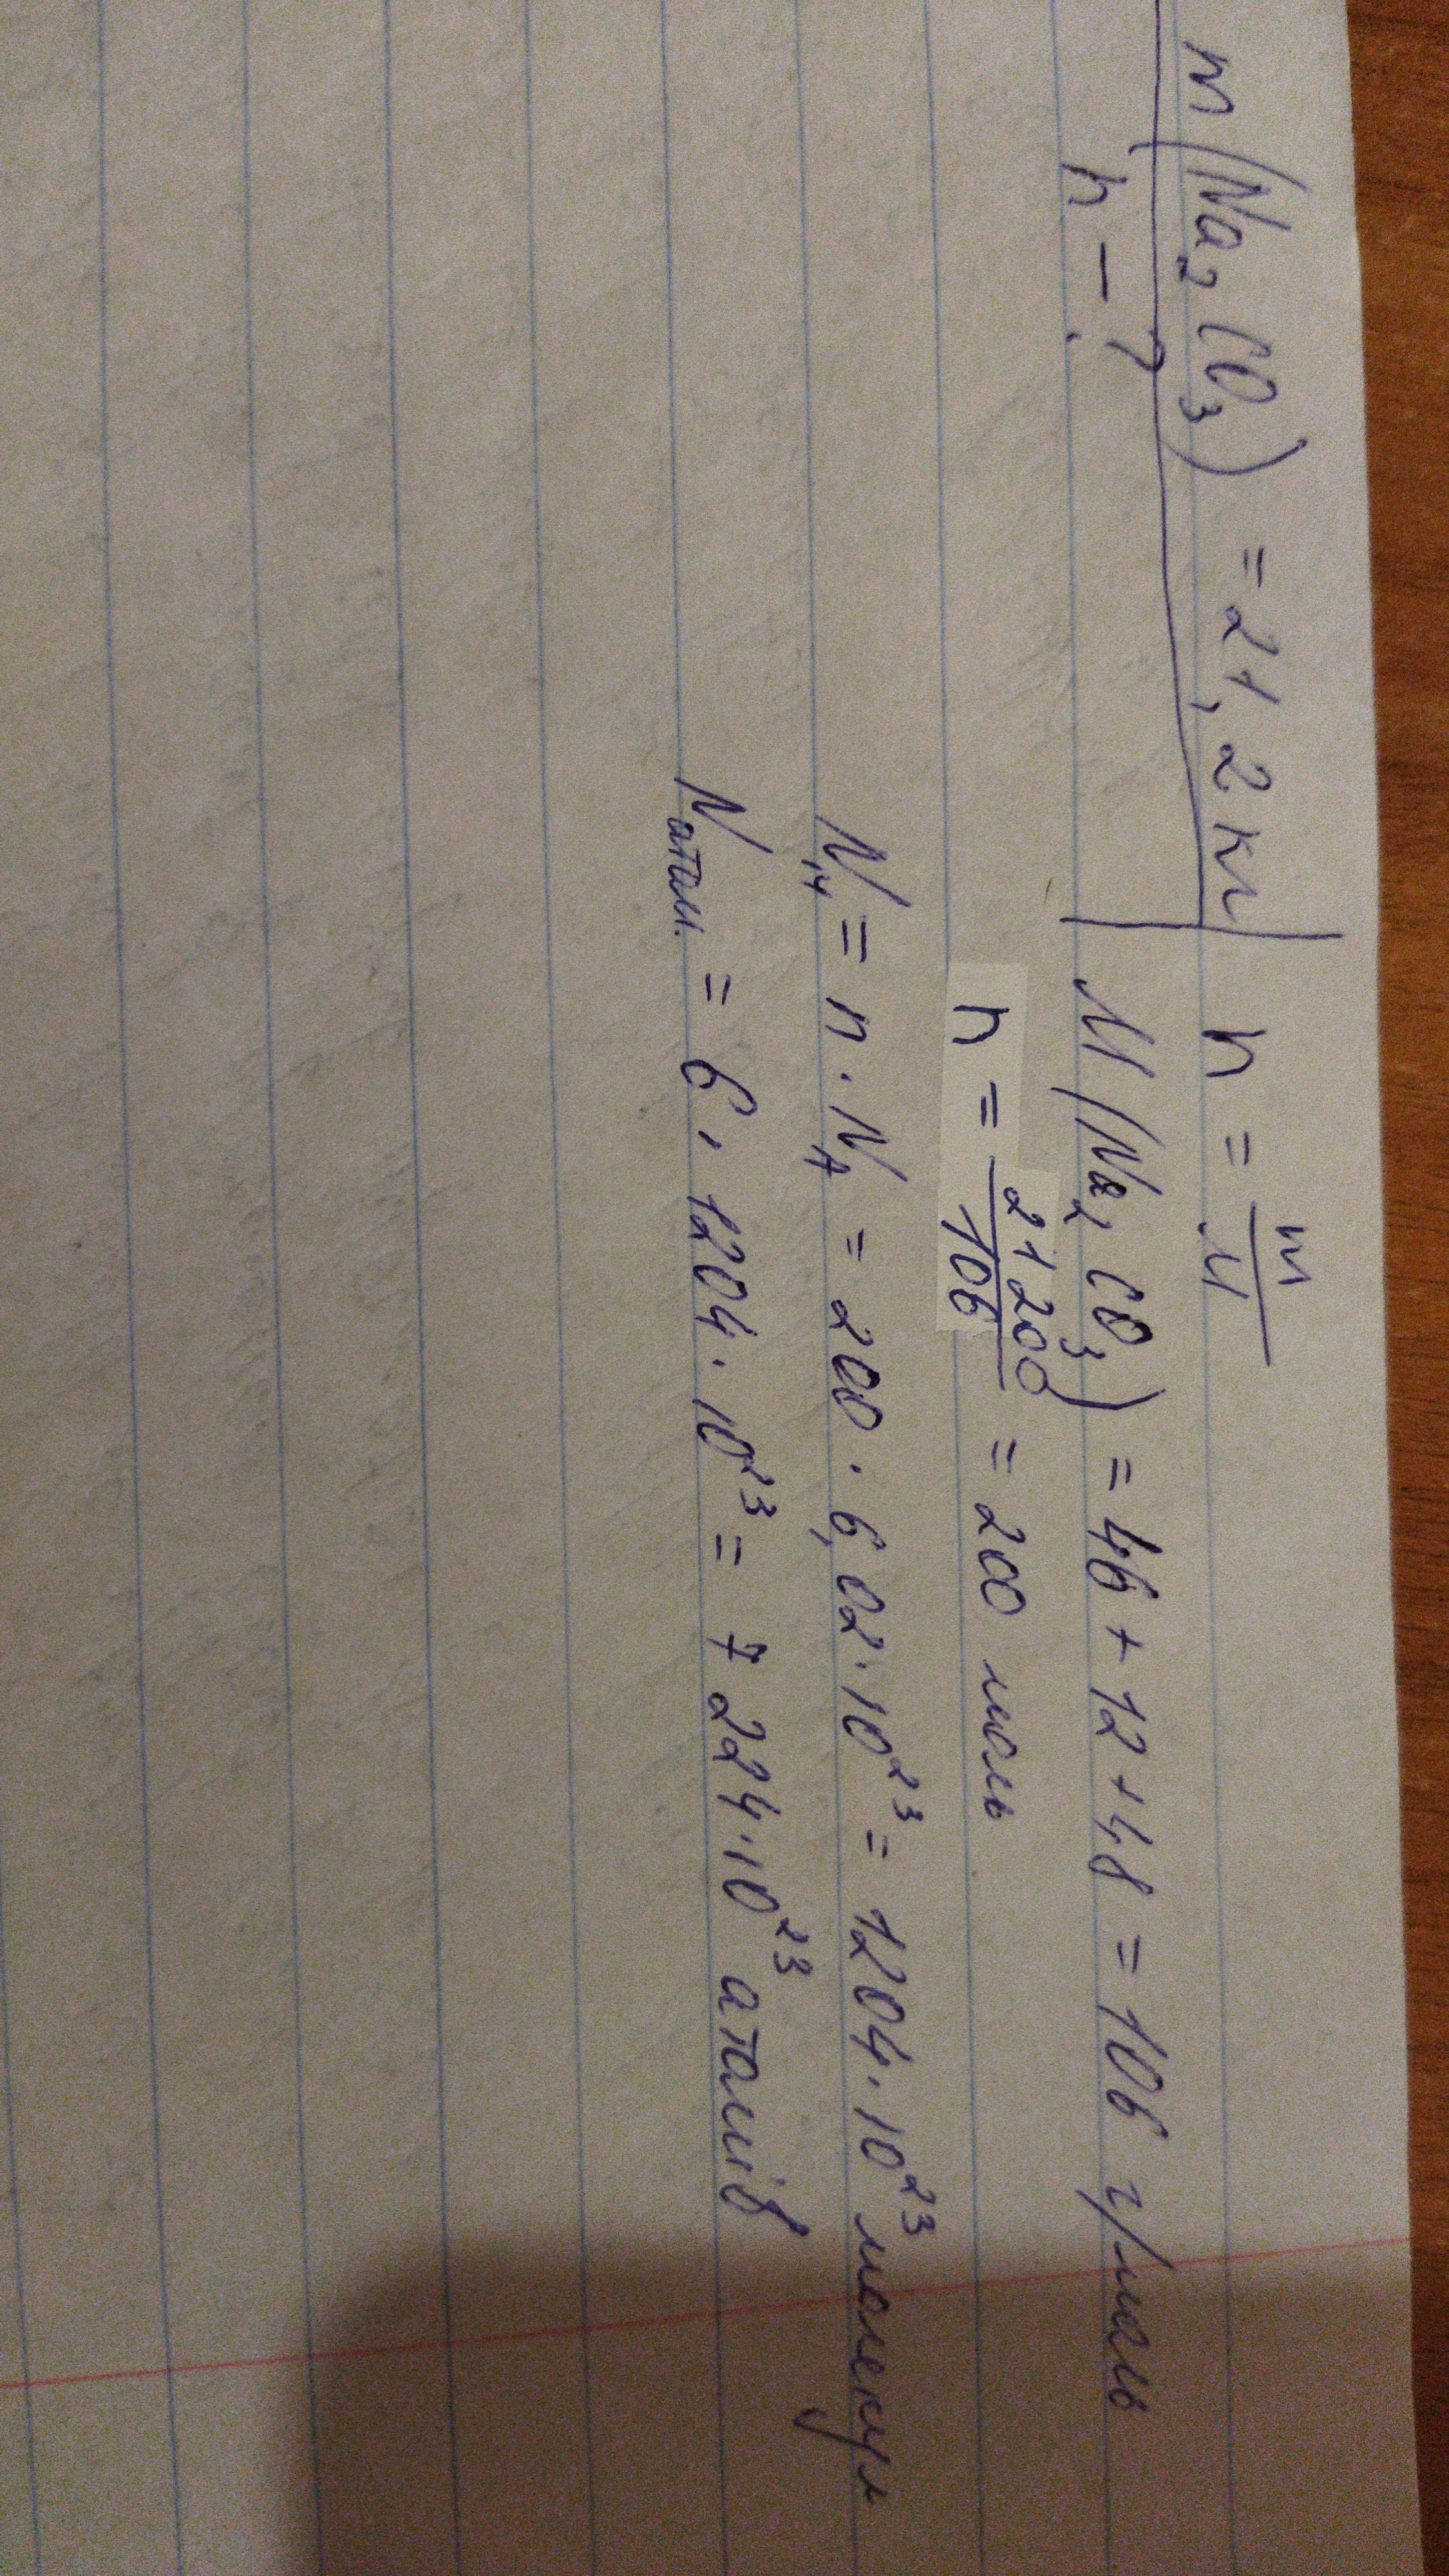 m(Na₂CO₃) = 21,2 кг
n - ?
n = m/M
M(Na₂CO₃) = 46 + 12 + 48 = 106 г/моль
n = 21200/106 = 200 моль
Nм = n · NA = 200 · 6,02 · 10²³ = 1204 · 10²³ молекул
Nатом. = 6 · 1204 · 10²³ = 7224 · 10²³ атомів